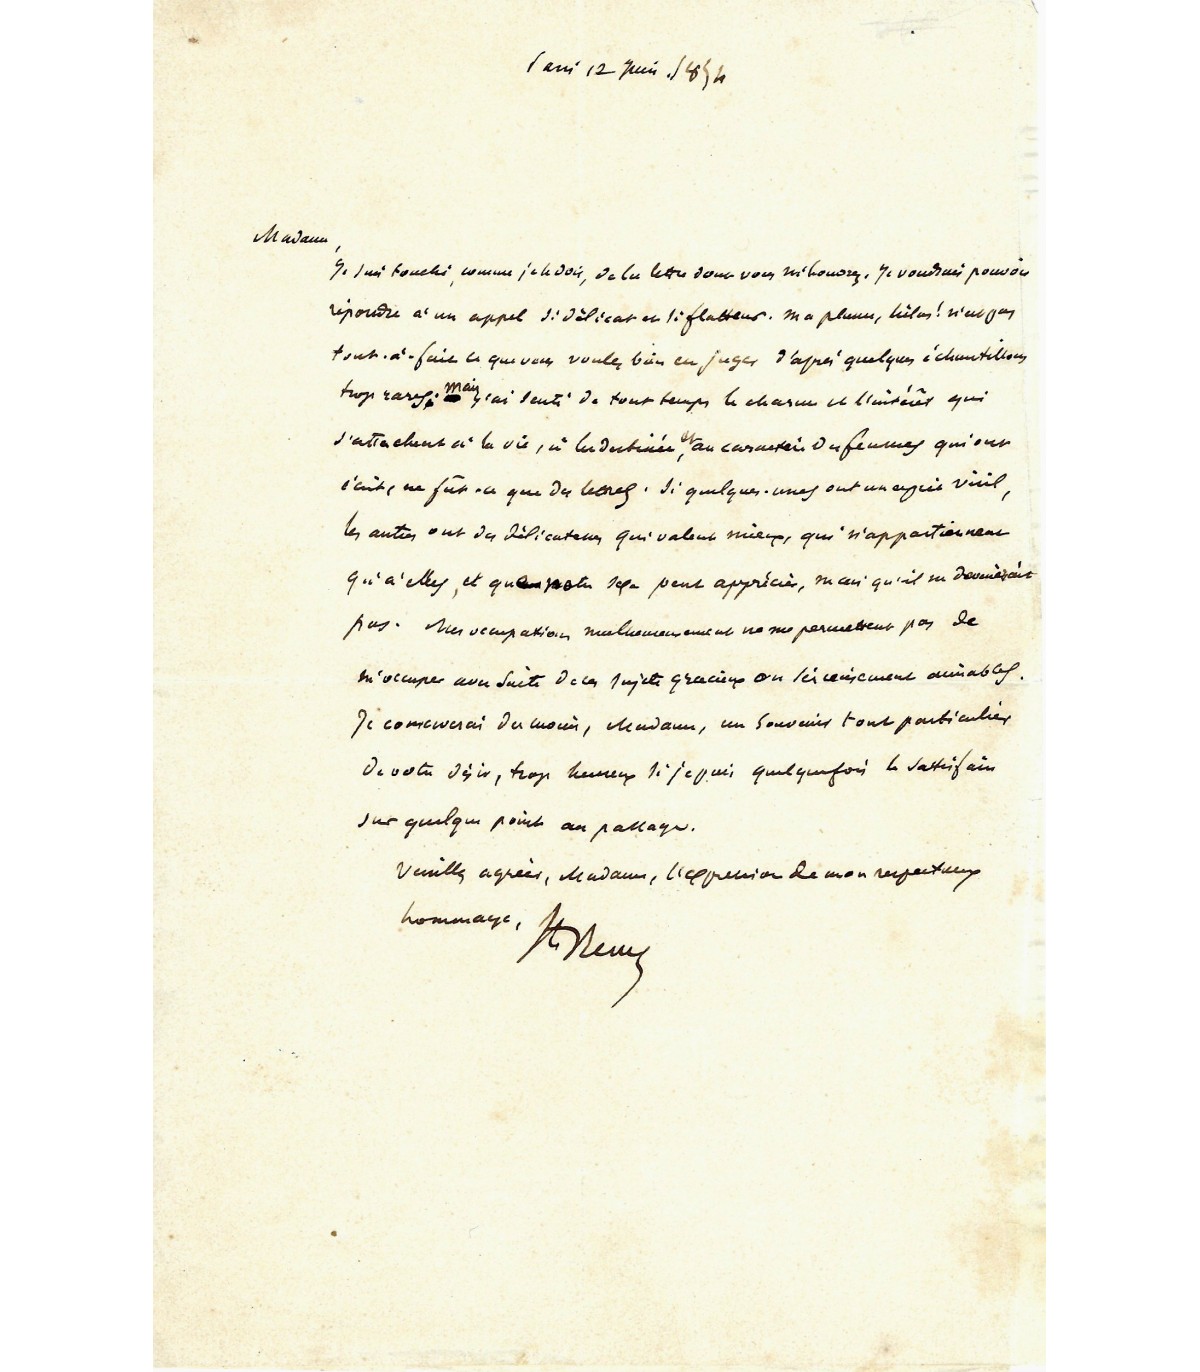 Paris 12 juin 1854
Madame,
Je suis touché, comme je le dois, de la lettre dont vous m'honorez. Je voudrais pouvoir
répondre à un appel si délicat et si flatteur. Ma plume, hélas! n'est pas
tout-à-fait ce que vous voulez bien en juger d'après quelques échantillons
trop rares; mais j'ai senti de tout temps le charme et l'intérêt qui
s'attachent à la vie, à la destinée, et au caractère des femmes qui ont
écrit, ne fût-ce que des lettres. Si quelques-unes ont un esprit viril,
les autres ont des délicatesses qui valent mieux, qui n'appartiennent
qu'à elles, et que notre sexe peut apprécier, mais qu'il ne devinerait
pas. Mes occupations malheureusement ne me permettent pas de
m'occuper avec suite de ces sujets gracieux ou sérieusement aimables.
Je conserverai du moins, Madame, un souvenir tout particulier
de votre désir, trop heureux si je puis quelquefois le satisfaire
sur quelque point au passage.
Veuillez agréer, Madame, l'expression de mon respectueux
hommage,
Ste Beuve